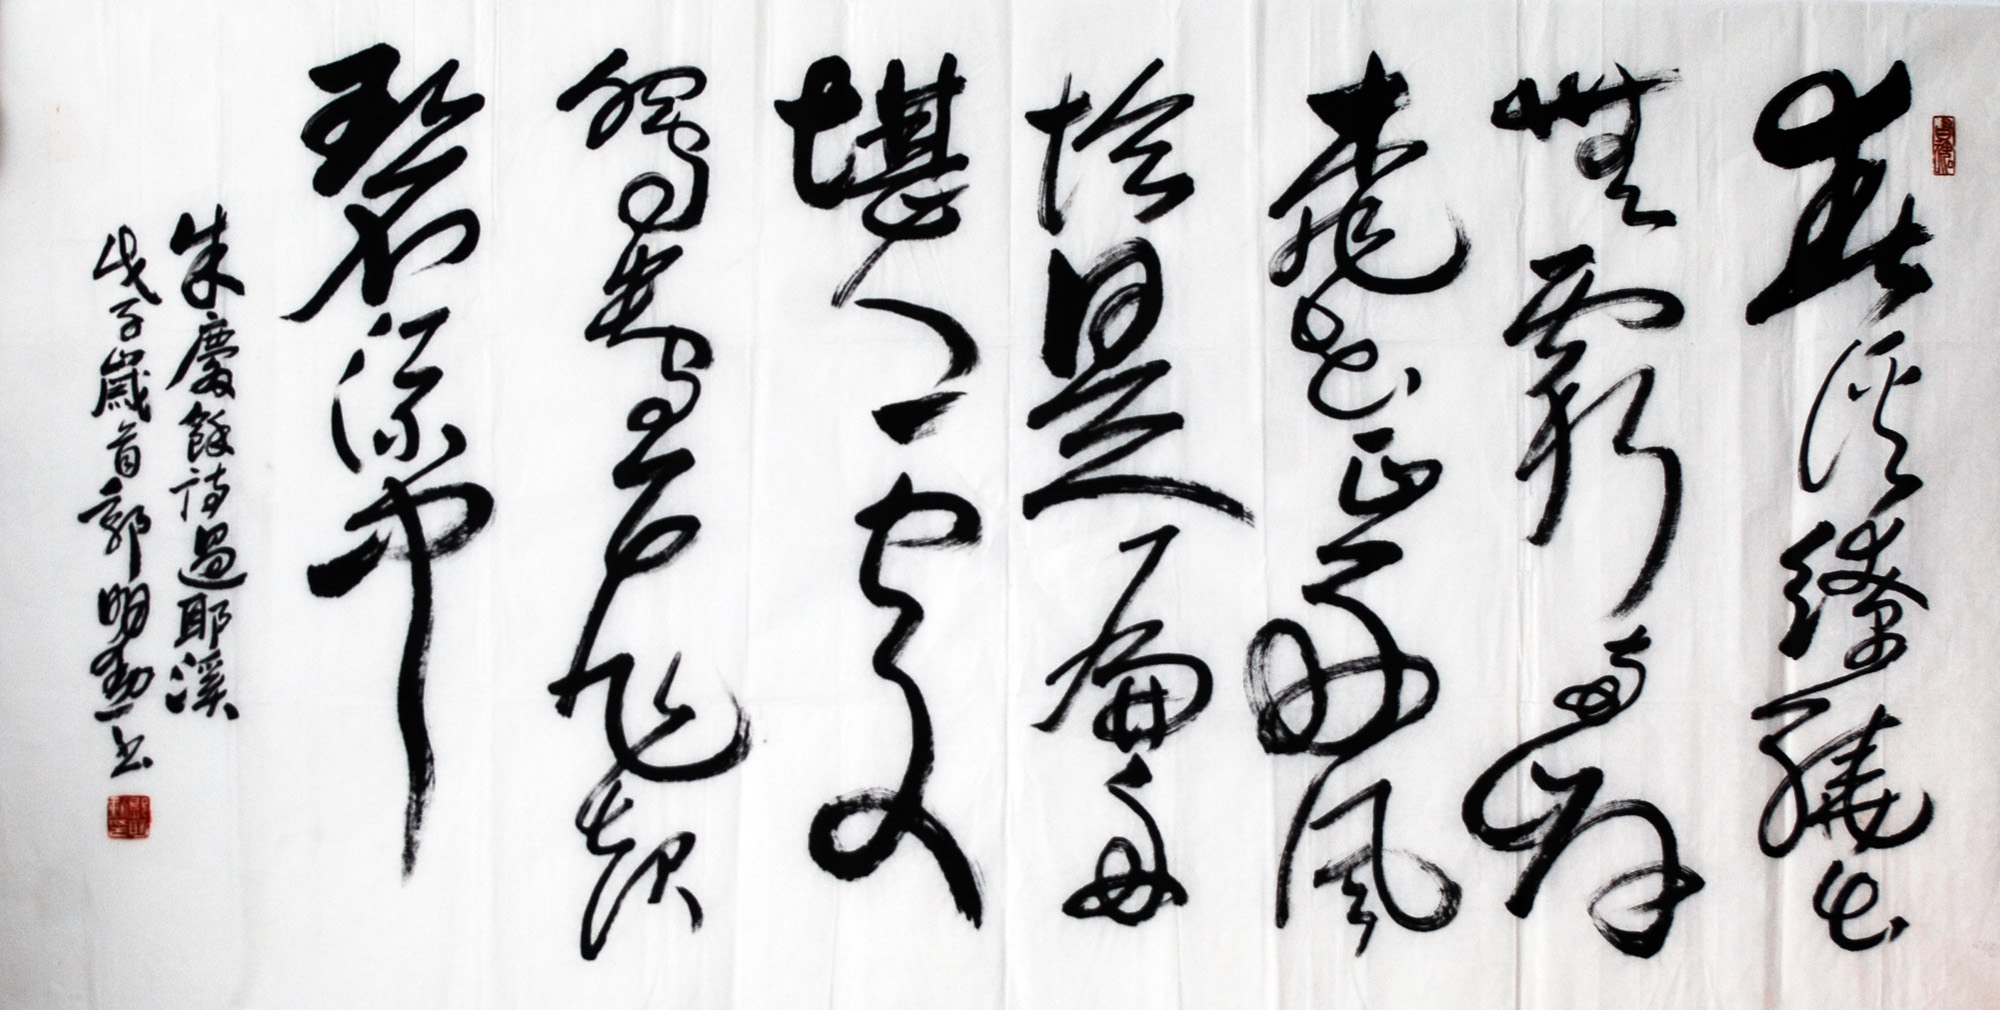 春溪繚繞出
無窮兩岸
桃花正好風
恰是扁舟
堪入處
鴛鴦飛起
碧流中
朱慶餘詩過耶溪
戊子歲首郭明勤书